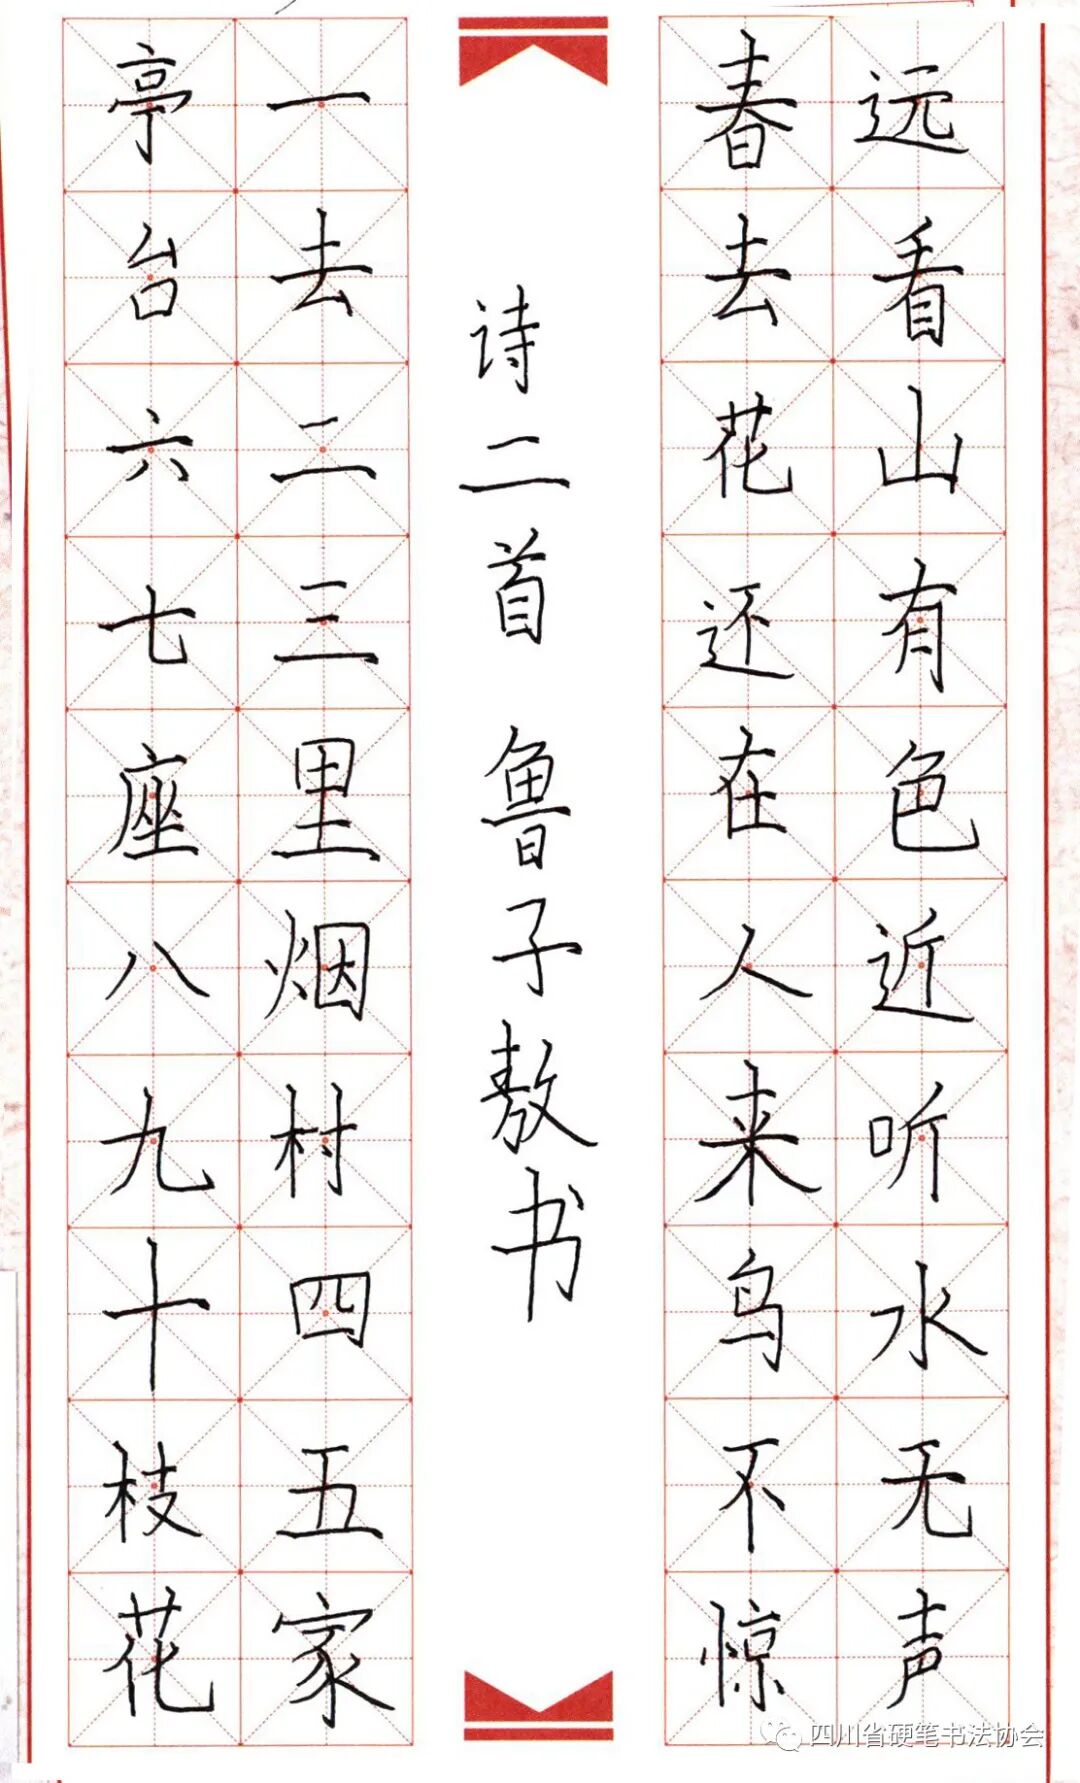 远看山有色近听水无声
春去花还在人来鸟不惊
诗二首 鲁子敖书
一去二三里烟村四五家
亭台六七座八九十枝花
四川省硬笔书法协会